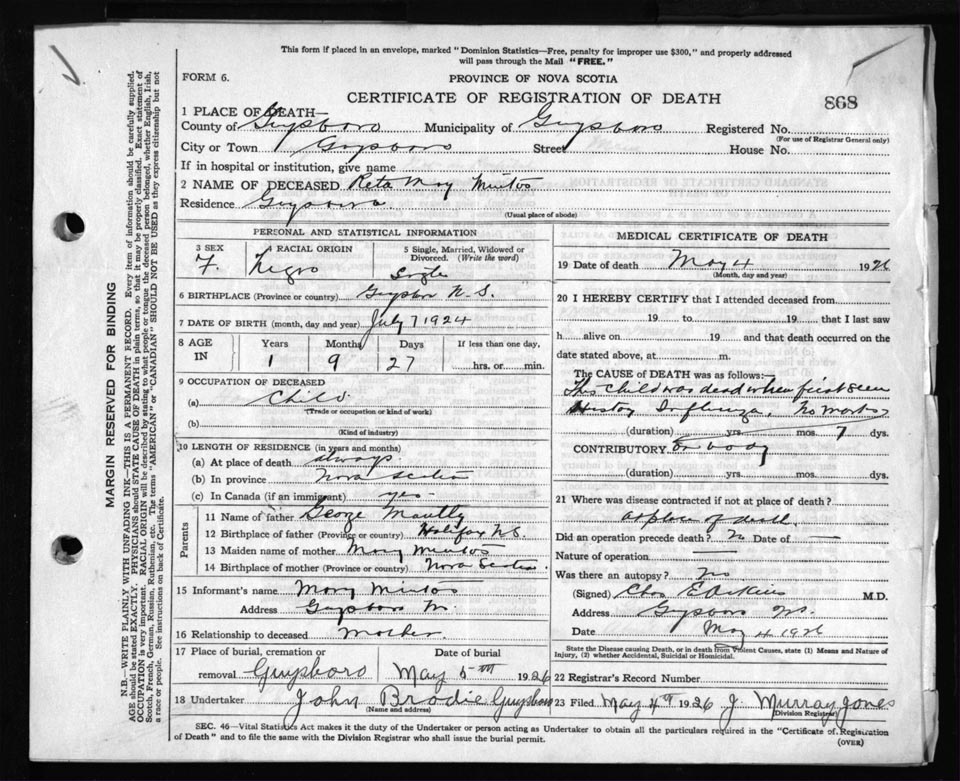 This form if placed in an envelope, marked "Dominion Statistics—Free, penalty for improper use $300," and properly addressed
will pass through the Mail "FREE."
FORM 6.
PROVINCE OF NOVA SCOTIA
CERTIFICATE OF REGISTRATION OF DEATH
868
1 PLACE OF DEATH—
County of Guysboro Municipality of Guysboro Registered No.
(For use of Registrar General only)
City or Town Guysboro Street House No.
If in hospital or institution, give name
2 NAME OF DECEASED Reta May Mintos
Residence Guysboro
(Usual place of abode)
PERSONAL AND STATISTICAL INFORMATION
3 SEX 4 RACIAL ORIGIN 5 Single, Married, Widowed or Divorced. (Write the word)
F. Negro Single
6 BIRTHPLACE (Province or country) Guysboro N.S.
7 DATE OF BIRTH (month, day and year) July 7 1924
8 AGE IN Years Months Days If less than one day,
1 9 27 hrs. or min.
9 OCCUPATION OF DECEASED
(a) Child
(Trade or occupation or kind of work)
(b)
(Kind of industry)
10 LENGTH OF RESIDENCE (in years and months)
(a) At place of death always
(b) In province Nova Scotia
(c) In Canada (if an immigrant) yes
Parents
11 Name of father George
12 Birthplace of father (Province or country) Halifax N.S.
13 Maiden name of mother Mary Mintos
14 Birthplace of mother (Province or country) Nova Scotia
15 Informant's name Mary Mintos
Address Guysboro
16 Relationship to deceased Mother
17 Place of burial, cremation or Date of burial
removal Guysboro May 5th 1926
18 Undertaker John Brodie Guysboro
(Name and address)
MEDICAL CERTIFICATE OF DEATH
19 Date of death May 4 1926
(Month, day and year)
20 I HEREBY CERTIFY that I attended deceased from
19 to 19 that I last saw
h alive on 19 and that death occurred on the
date stated above, at m.
The CAUSE OF DEATH was as follows:—
This child was dead when first seen
History Influenza, No marks
(duration) yrs. mos. 7 dys.
CONTRIBUTORY on body
(duration) yrs. mos. dys.
21 Where was disease contracted if not at place of death?
at place of death
Did an operation precede death? No Date of —
Nature of operation —
Was there an autopsy? No
(Signed) Chas E M.D.
Address Guysboro N.S.
Date May 4 1926
State the Disease causing Death, or in death from Violent Causes, state (1) Means and Nature of
Injury, (2) whether Accidental, Suicidal or Homicidal.
22 Registrar's Record Number
23 Filed May 4th 1926 J. Murray Jones
(Division Registrar)
SEC. 46—Vital Statistics Act makes it the duty of the Undertaker or person acting as Undertaker to obtain all the particulars required in the "Certificate of Registration
of Death" and to file the same with the Division Registrar who shall issue the burial permit.
(OVER)
MARGIN RESERVED FOR BINDING
N.B.—WRITE PLAINLY WITH UNFADING INK—THIS IS A PERMANENT RECORD. Every item of information should be carefully supplied.
AGE should be stated EXACTLY. PHYSICIANS should STATE CAUSE OF DEATH in plain terms, so that it may be properly classified. Exact statement of
OCCUPATION is very important. RACIAL ORIGIN will be described by stating to what people or tongue the deceased person belonged, whether English, Irish,
Scotch, French, German, Russian, Ruthenian, etc. The terms "AMERICAN" or "CANADIAN" SHOULD NOT BE USED as they express citizenship but not
a race or people. See instructions on back of Certificate.